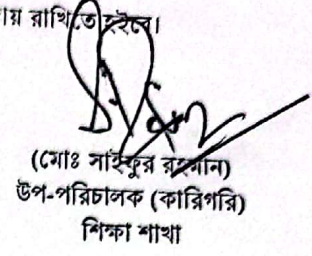 রাখিতে হইবে।
(মোঃ সাইফুর রহমান)
উপ-পরিচালক (কারিগরি)
শিক্ষা শাখা